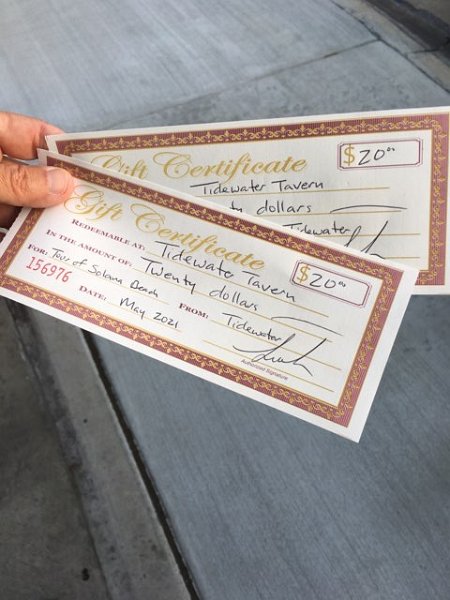 Gift Certificate
$20⁰⁰
Tidewater Tavern
dollars
Tidewater
Gift Certificate
$20⁰⁰
REDEEMABLE AT: Tidewater Tavern
IN THE AMOUNT OF: Twenty dollars
FOR: Tour of Solana Beach
FROM: Tidewater
156976
DATE: May 2021
Authorized Signature